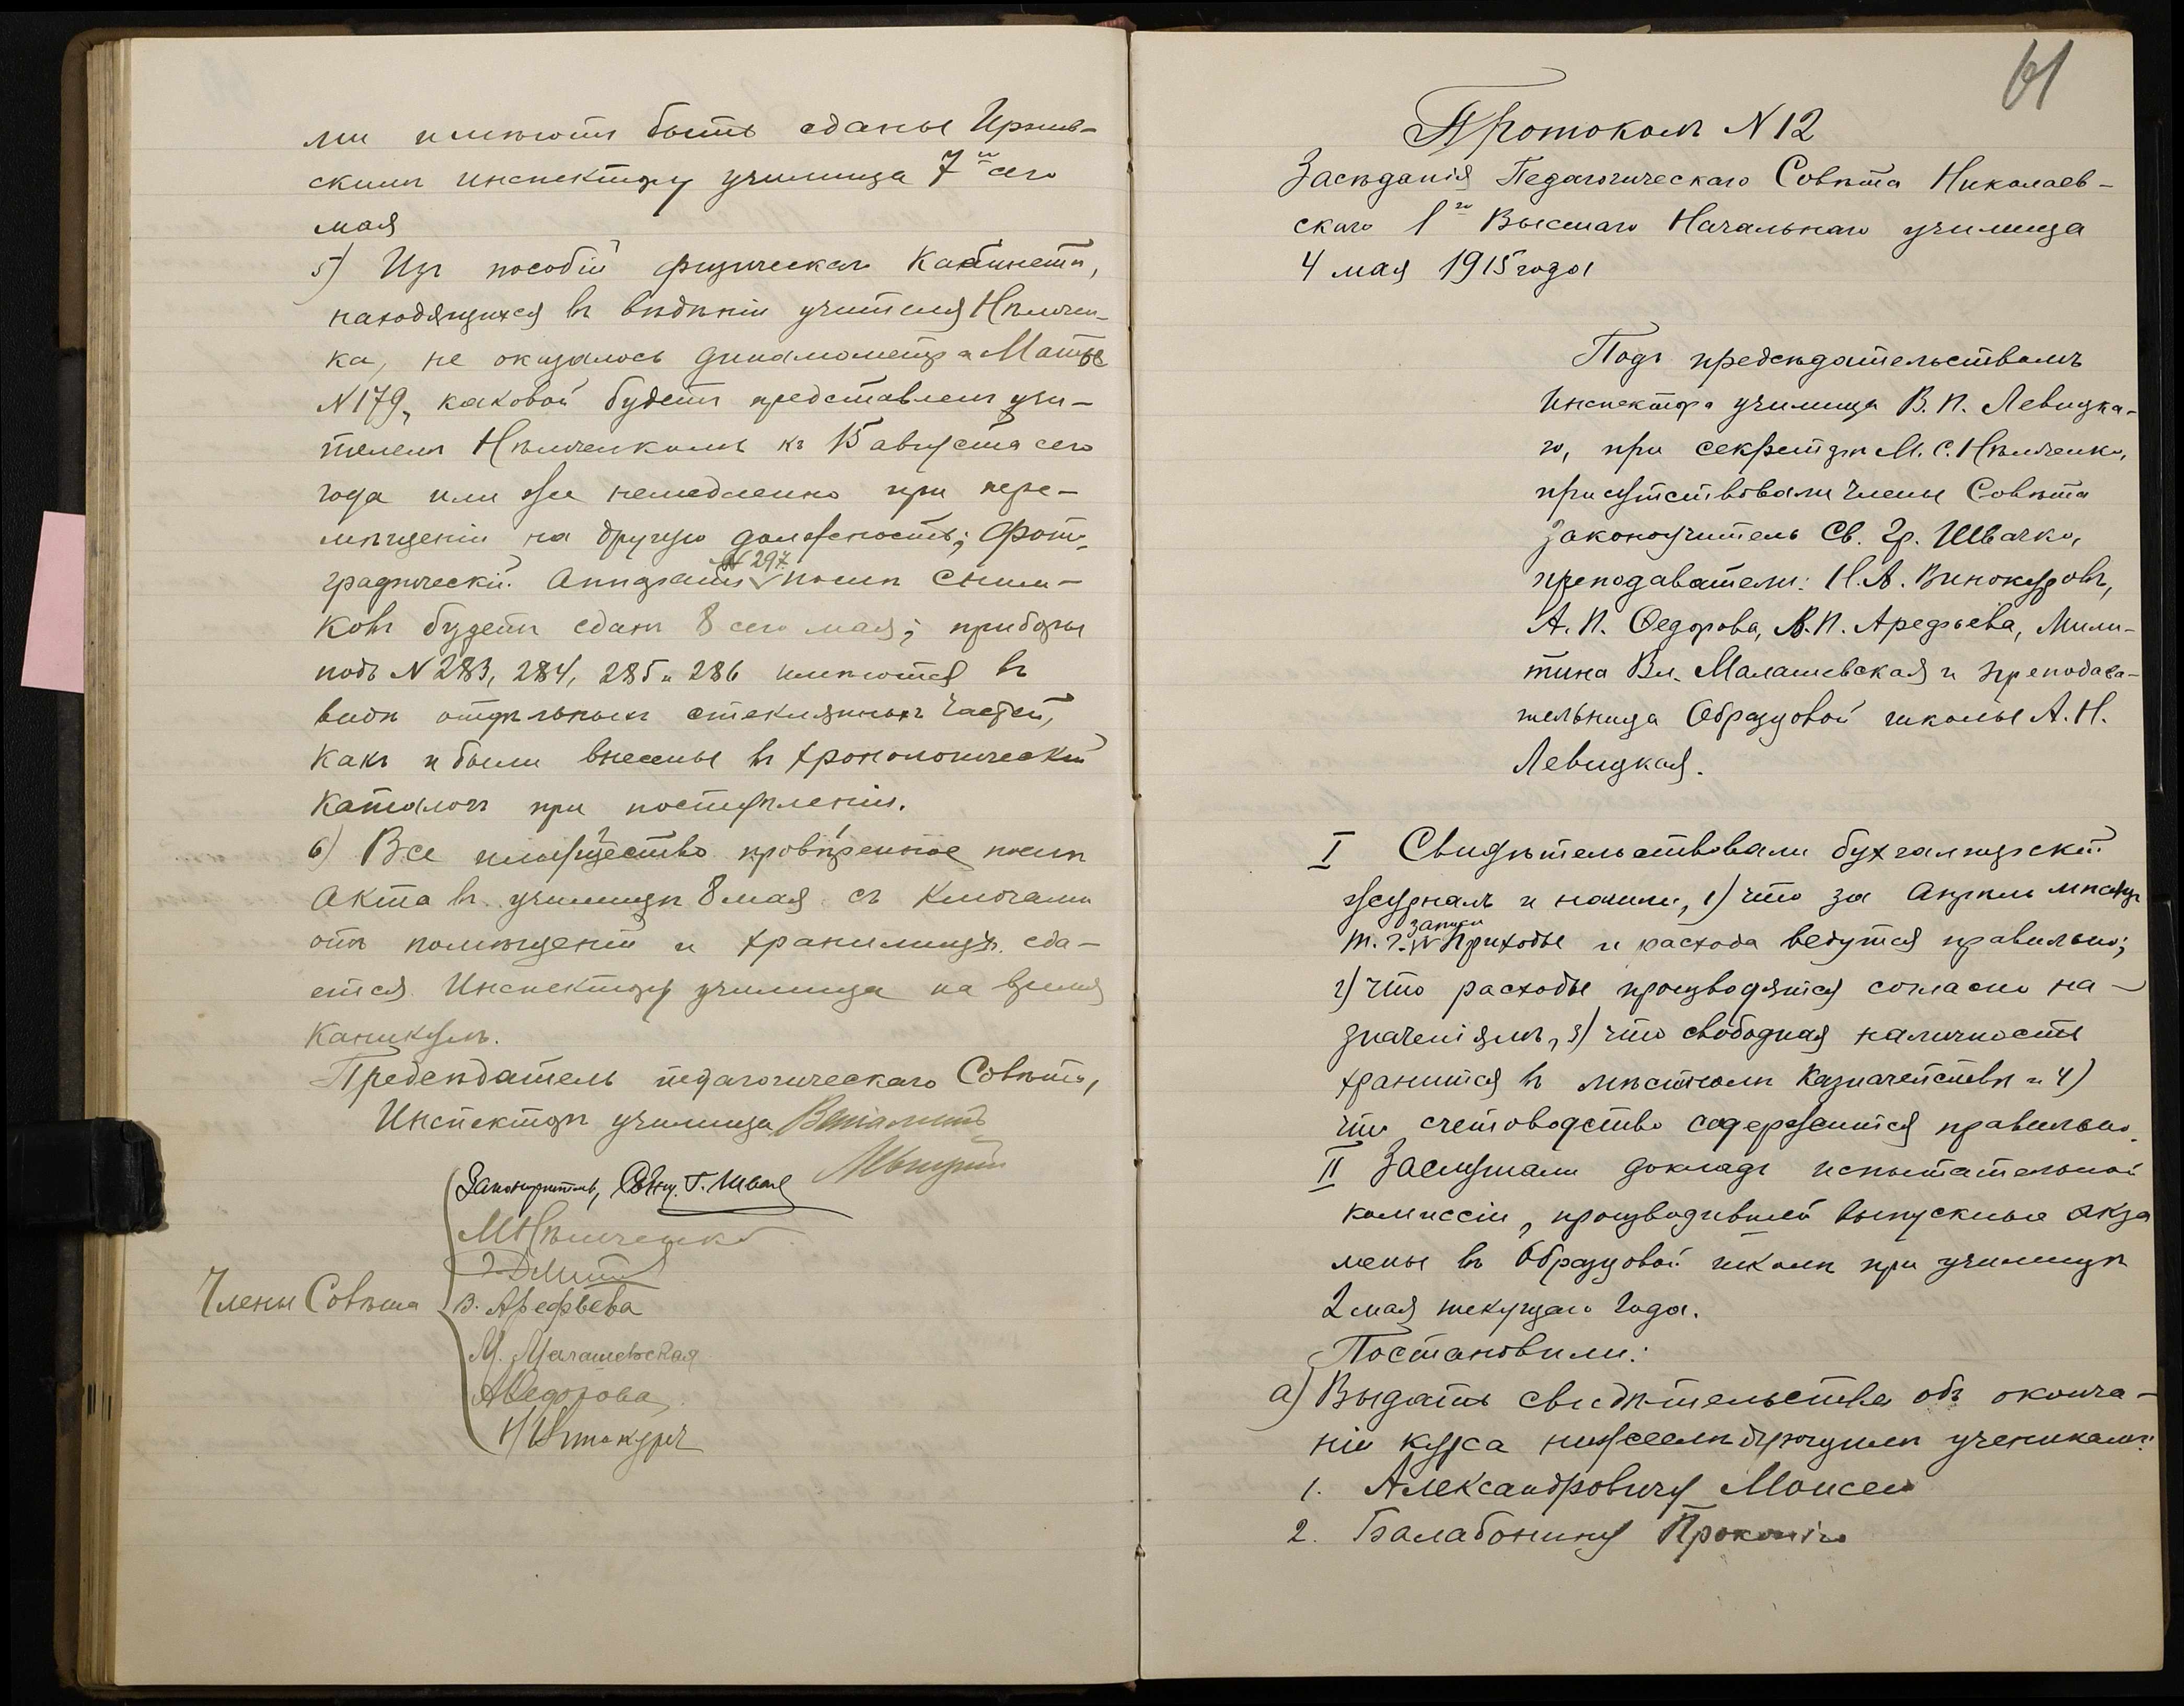 ми имѣютъ быть сданы Иржив-
скимъ инспектору училища 7го сего
мая
5) Изъ пособій физическаго кабинета,
находящихся въ вѣдѣніи учителя Нѣмчен-
ка, не оказалось динамометра Матье
N 179, каковой будетъ представленъ учи-
телемъ Нѣмченкомъ къ 15 августа сего
года или же немедленно при пере-
мѣщеніи на другую должность; фото-
графическій аппаратъ N 297 послѣ сним-
ковъ будетъ сданъ 8 сего мая; приборы
подъ N 283, 284, 285 и 286 имѣются въ
видѣ отдѣльныхъ стеклянныхъ частей,
какъ и были внесены въ хронологическій
каталогъ при поступленіи.
6) Все имущество провѣренное послѣ
акта въ училищѣ 8 мая съ ключами
отъ помѣщеній и хранилищъ сда-
ется Инспектору училища на время
каникулъ.
Предсѣдатель педагогическаго Совѣта,
Инспекторъ училища Веніаминъ
Левицкій
Законоучитель, Свящ. Г. Швачко
М Нѣмченко
Члены Совѣта
В. Арефьева
М. Малашевская
А Ѳедорова
Н Винокуровъ
61
Протоколъ N 12
Засѣданія Педагогическаго Совѣта Николаев-
скаго 1го Высшаго Начальнаго училища
4 мая 1915 года
Подъ предсѣдательствомъ
Инспектора училища В. П. Левицка-
го, при секретарѣ М. С. Нѣмченко,
присутствовали члены Совѣта
законоучитель Св. Гр. Швачко,
преподаватели: Н. А. Винокуровъ,
А. П. Ѳедорова, В. П. Арефьева, Мили-
тина Вл. Малашевская и преподава-
тельница Образцовой школы А. Н.
Левицкая.
I Свидѣтельствовали бухгалтерскій
журналъ и нашли, 1) что за Апрѣль мѣсяцъ
т. г. записи прихода и расхода ведутся правильно;
2) что расходы производятся согласно на-
значеніямъ, 3) что свободная наличность
хранится въ мѣстномъ казначействѣ и 4)
что счетоводство содержится правильно.
II Заслушали докладъ испытательной
комиссіи, производившей выпускные экза
мены въ Образцовой школѣ при училищѣ
2 мая текущаго года.
Постановили:
а) Выдать свидѣтельства объ оконча-
ніи курса нижеслѣдующимъ ученикамъ:
1. Александровичу Моисею
2. Балабонину Прокопію